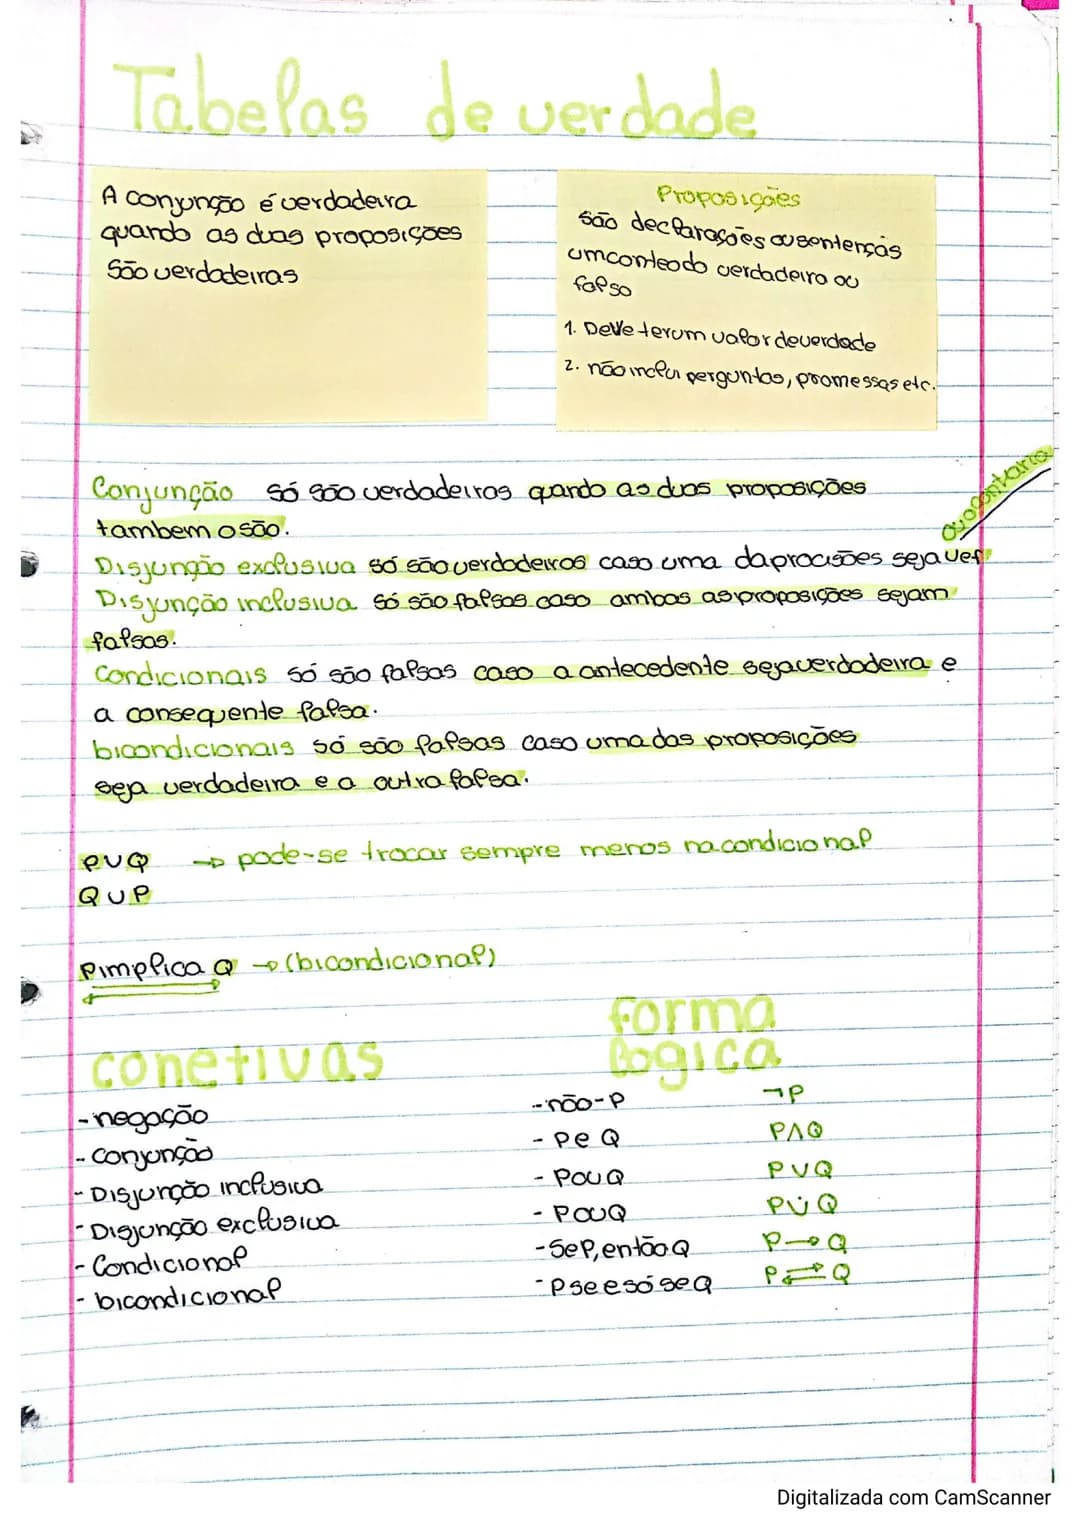 Tabelas de verdade
A conjunção é verdadeira
quando as duas proposições
São verdadeiras
Proposições
são declarações ou sentenças
um conteodo verdadeiro ou
falso
1. Deve ter um valor de verdade
2. não inclui perguntas, promessas etc.
Conjunção só são verdadeiras quando as duas proposições
tambem o são.
ou o contario
Disjunção exclusiva só são verdadeiros caso uma da procisões seja ver
Disjunção inclusiva só são falsas caso ambas as proposições sejam
falsas.
Condicionais só são falsas caso a antecedente seja verdadeira e
a consequente falsa.
bicondicionais só são falsas caso uma das proposições
seja verdadeira e a outra falsa.
PVQ → pode-se trocar sempre menos na condicional
QUP
P implica Q → (bicondicional)
conetivas
forma
logica
- negação - não-P ¬P
- conjunção - P e Q P∧Q
- Disjunção inclusiva - P ou Q PVQ
- Disjunção exclusiva - P ou Q PV̇Q
- Condicional - Se P, então Q P→Q
- bicondicional - P se e só se Q P⇄Q
Digitalizada com CamScanner